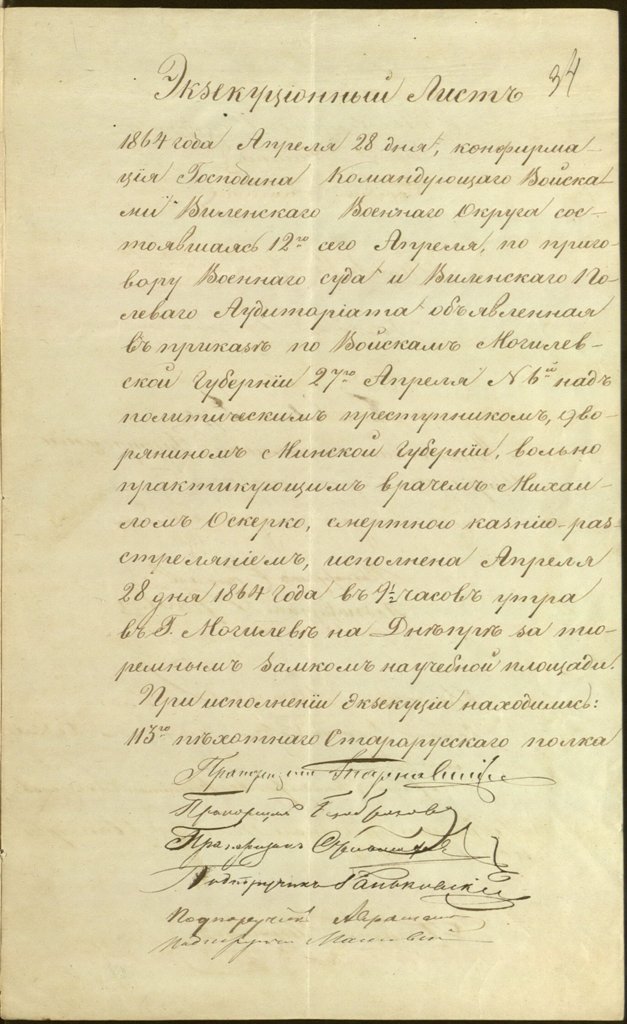 34
Экзекуціонный Листъ
1864 года Апреля 28 дня, конфирма-
ція Господина Командующаго Войска-
ми Виленскаго Военнаго Округа сос-
тоявшаясь 12го сего Апреля, по приго-
вору Военнаго суда и Виленскаго По-
леваго Аудиторіата объявленная
въ приказѣ по Войскамъ Могилев-
ской Губерніи 27го Апреля N 6й надъ
политическимъ преступникомъ, дво-
ряниномъ Минской Губерніи, вольно
практикующимъ врачемъ Михаи-
ломъ Оскерко, смертною казнію-раз-
стреляніемъ, исполнена Апреля
28 дня 1864 года въ 9½ часовъ утра
въ Г. Могилевѣ на Днѣпрѣ за тю-
ремнымъ Замкомъ на учебной площади.
При исполненіи Экзекуціи находились:
113го пѣхотнаго Старорусскаго полка
Прапорщикъ
Прапорщикъ
Прапорщикъ
Подпоручикъ
Подпоручикъ
Подпоручикъ